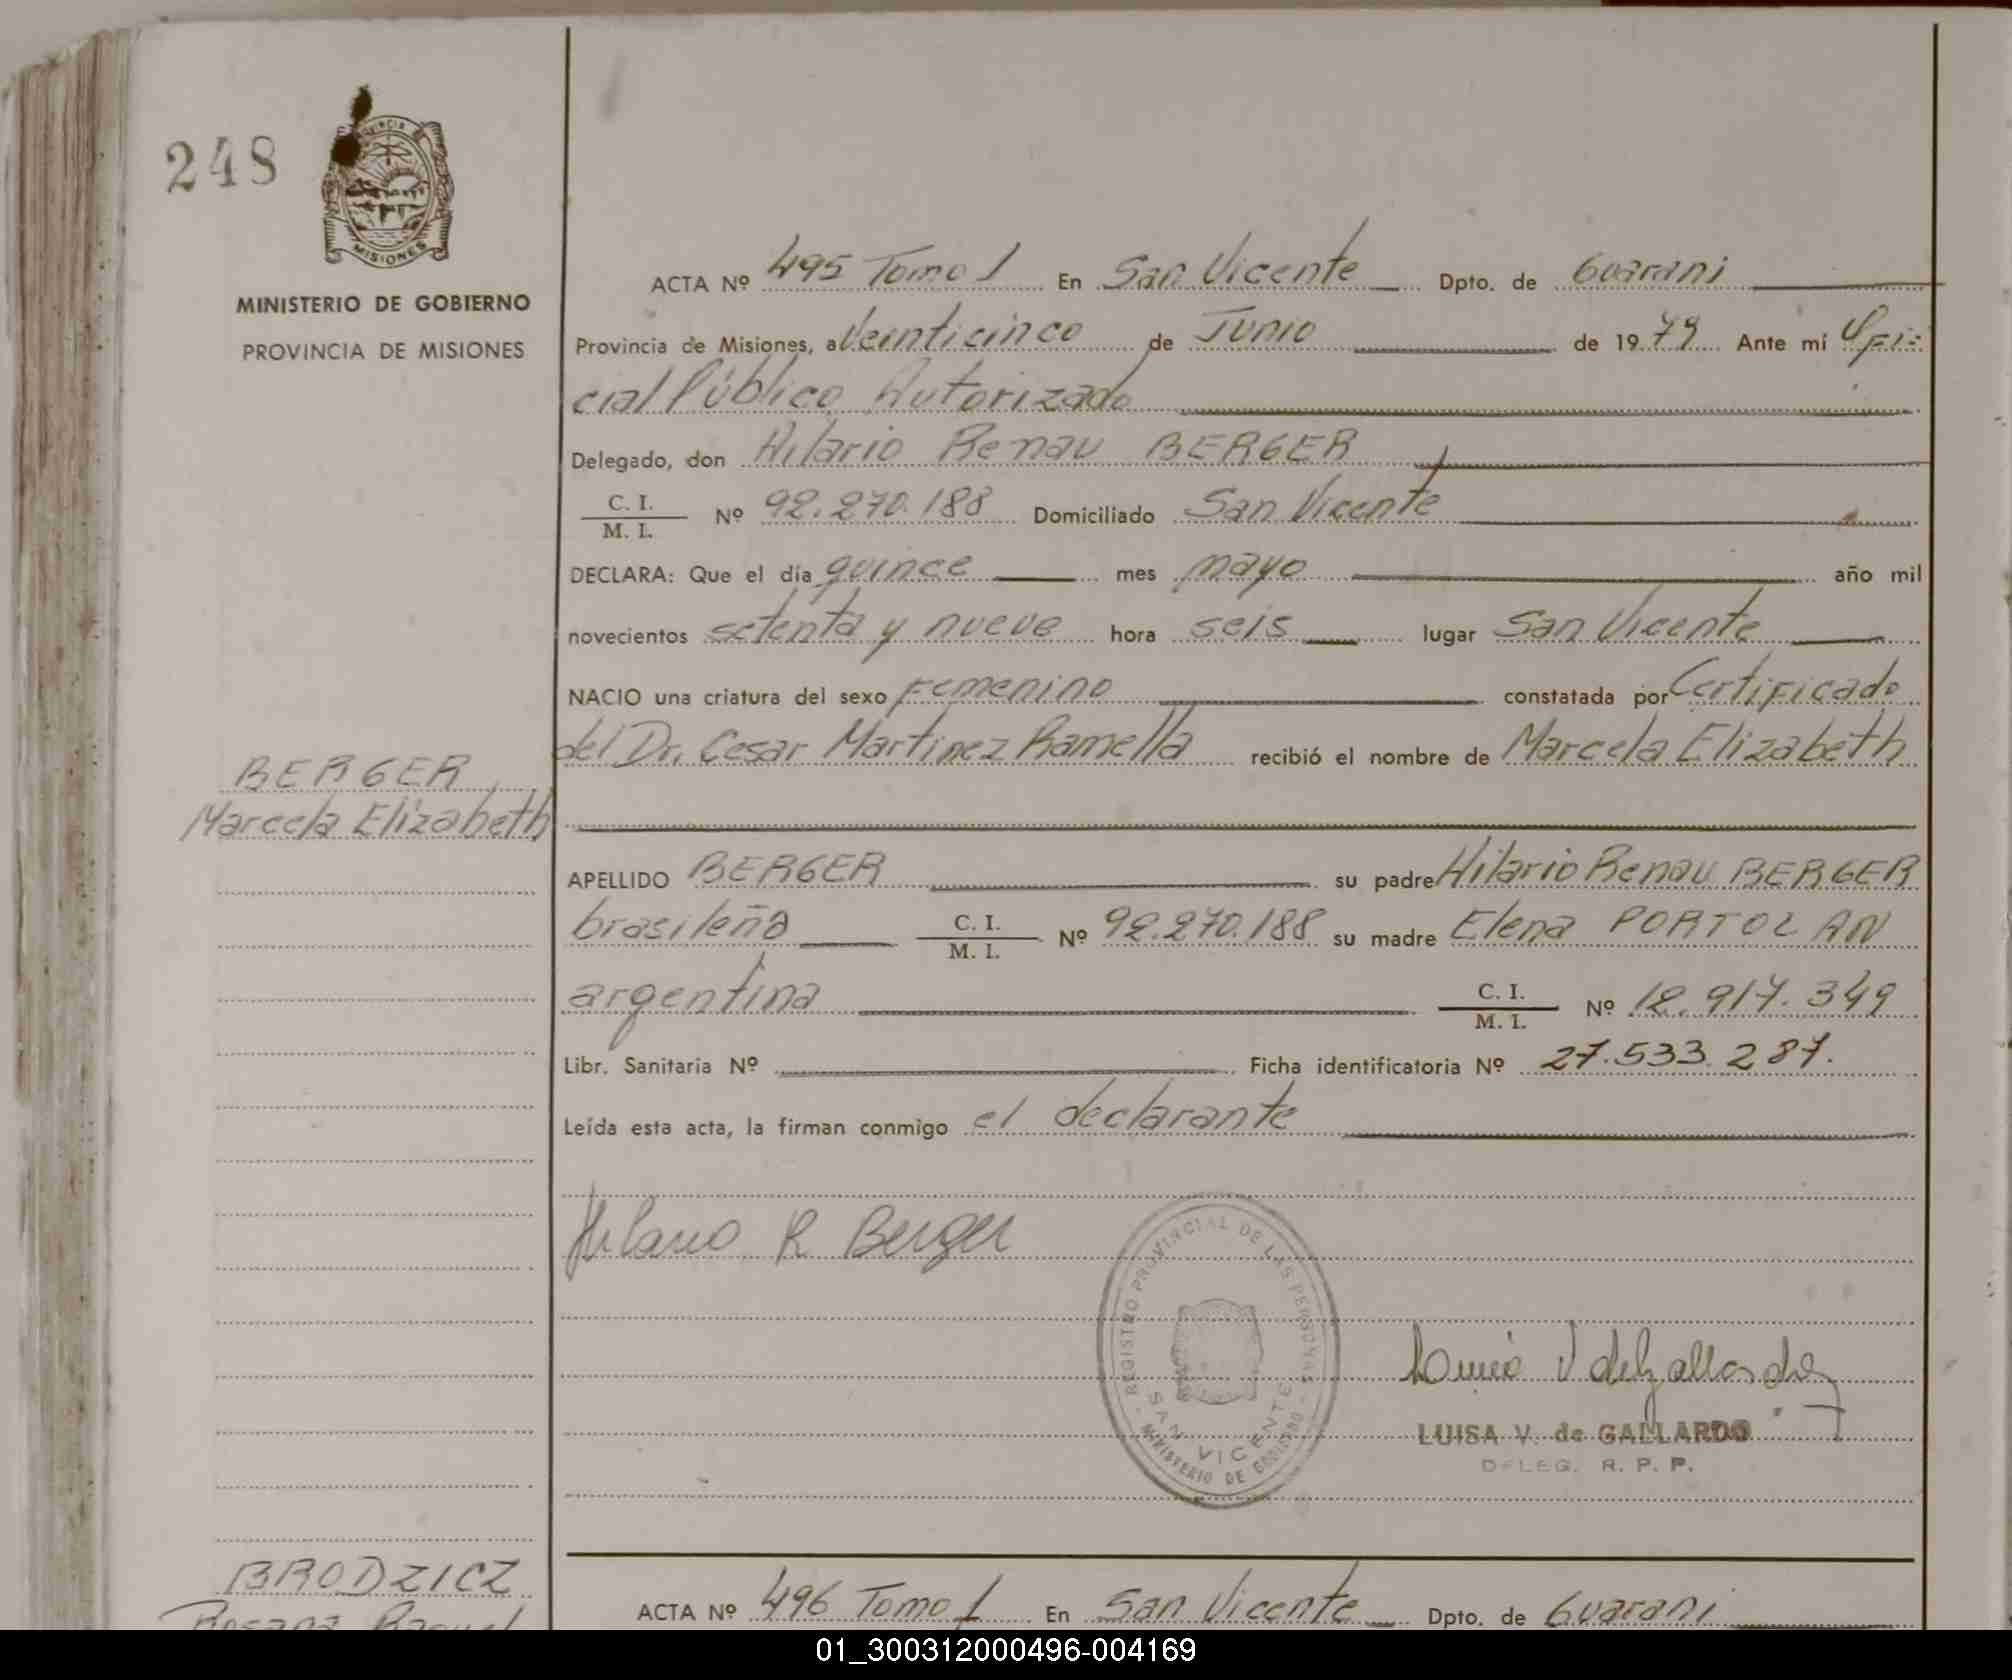 248
MISIONES
MINISTERIO DE GOBIERNO
PROVINCIA DE MISIONES
ACTA Nº 495 Tomo 1 En San Vicente Dpto. de Guarani
Provincia de Misiones, a Veinticinco de Junio de 1979 Ante mí Ofi-
cial Público Autorizado
Delegado, don Hilario Renau BERGER
C. I.
M. I. Nº 92.270.188 Domiciliado San Vicente
DECLARA: Que el día quince mes mayo año mil
novecientos setenta y nueve hora seis lugar San Vicente
NACIO una criatura del sexo Femenino constatada por Certificado
del Dr. Cesar Martinez Ramella recibió el nombre de Marcela Elizabeth
BERGER
Marcela Elizabeth
APELLIDO BERGER su padre Hilario Renau BERGER
brasileña C. I. M. I. Nº 92.270.188 su madre Elena PORTOLAN
argentina C. I. M. I. Nº 12.917.349
Libr. Sanitaria Nº Ficha identificatoria Nº 27.533.287.
Leída esta acta, la firman conmigo el declarante
Hilario R Berger
REGISTRO PROVINCIAL DE LAS PERSONAS
SAN VICENTE
MINISTERIO DE GOBIERNO
LUISA V. de GALLARDO
DELEG. R. P. P.
BRODZICZ
Rosana Raquel
ACTA Nº 496 Tomo 1 En San Vicente Dpto. de Guarani
01_300312000496-004169